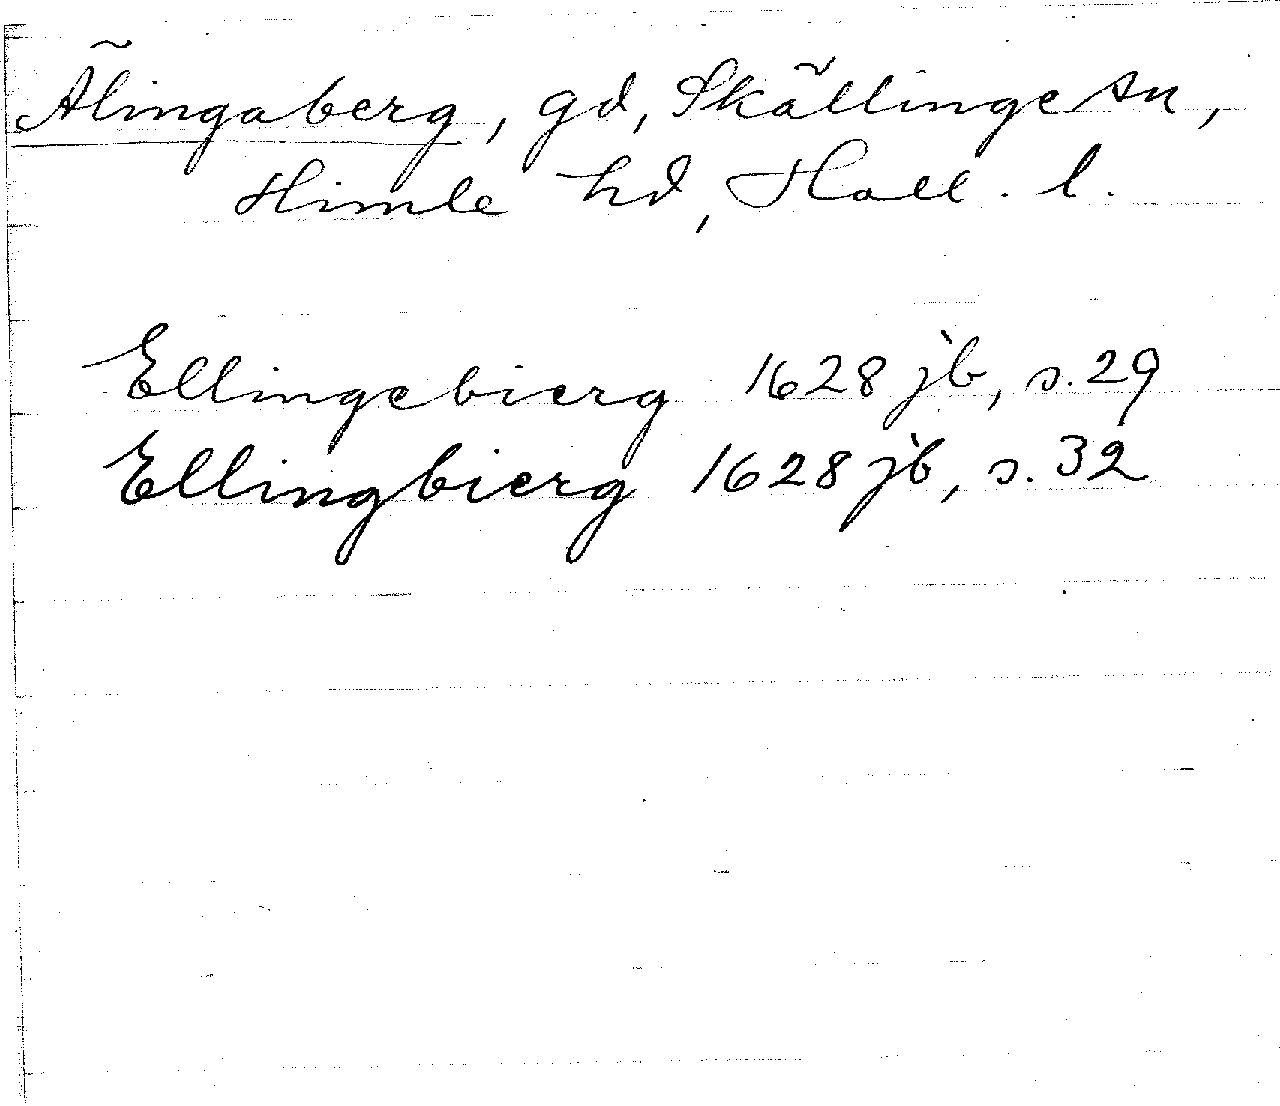 Älingaberg, gd, Skällinge sn,
Himle hd, Hall. l.
Ellingebierg 1628 jb, s. 29
Ellingbierg 1628 jb, s. 32